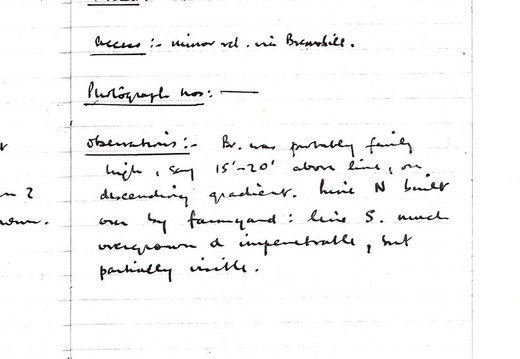 Access :- minor rd. via Bramhill.
Photograph nos: —
Observations :- Br. was probably fairly
high, say 15'-20' above line, on
descending gradient. Line N built
over by farmyard : line S. much
overgrown & impenetrable, but
partially visible.